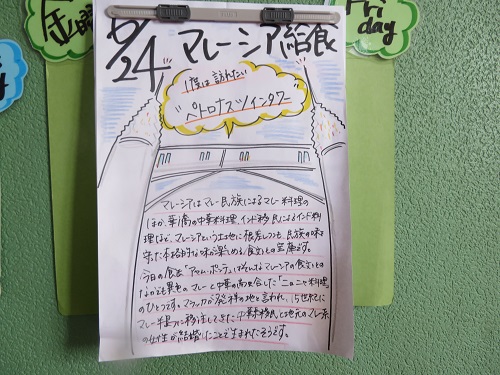 金曜
Friday
6/24 マレーシア給食
1度は訪れたい
"ペトロナスツインタワー"
マレーシアはマレー民族によるマレー料理の
ほか、華僑の中華料理、インド移民によるインド料
理など、マレーシアという土地に根差しつつも、民族の味を
守った本格的な味が楽しめる「食」の宝庫です。
今日の食
マレーシアの食文化の
なかでも異色の、マレーと中華の融合した「ニョニャ料理」
のひとつです。マラッカが発祥の地と言われ、15世紀に
マレー半島に移住してきた中華系移民と地元のマレー系
の女性が結婚したことで生まれたそうです。